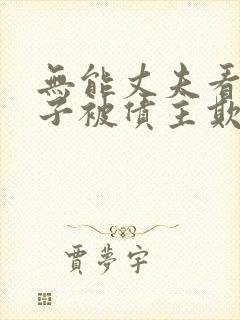 無能丈夫看
子被债主欺
賈夢宇